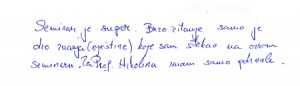 Seminar je super. Brzo čitanje samo je
dio znanja (vještine) koje sam stekao na ovom
seminaru. Za Prof. Nikolinu imam samo pohvale.